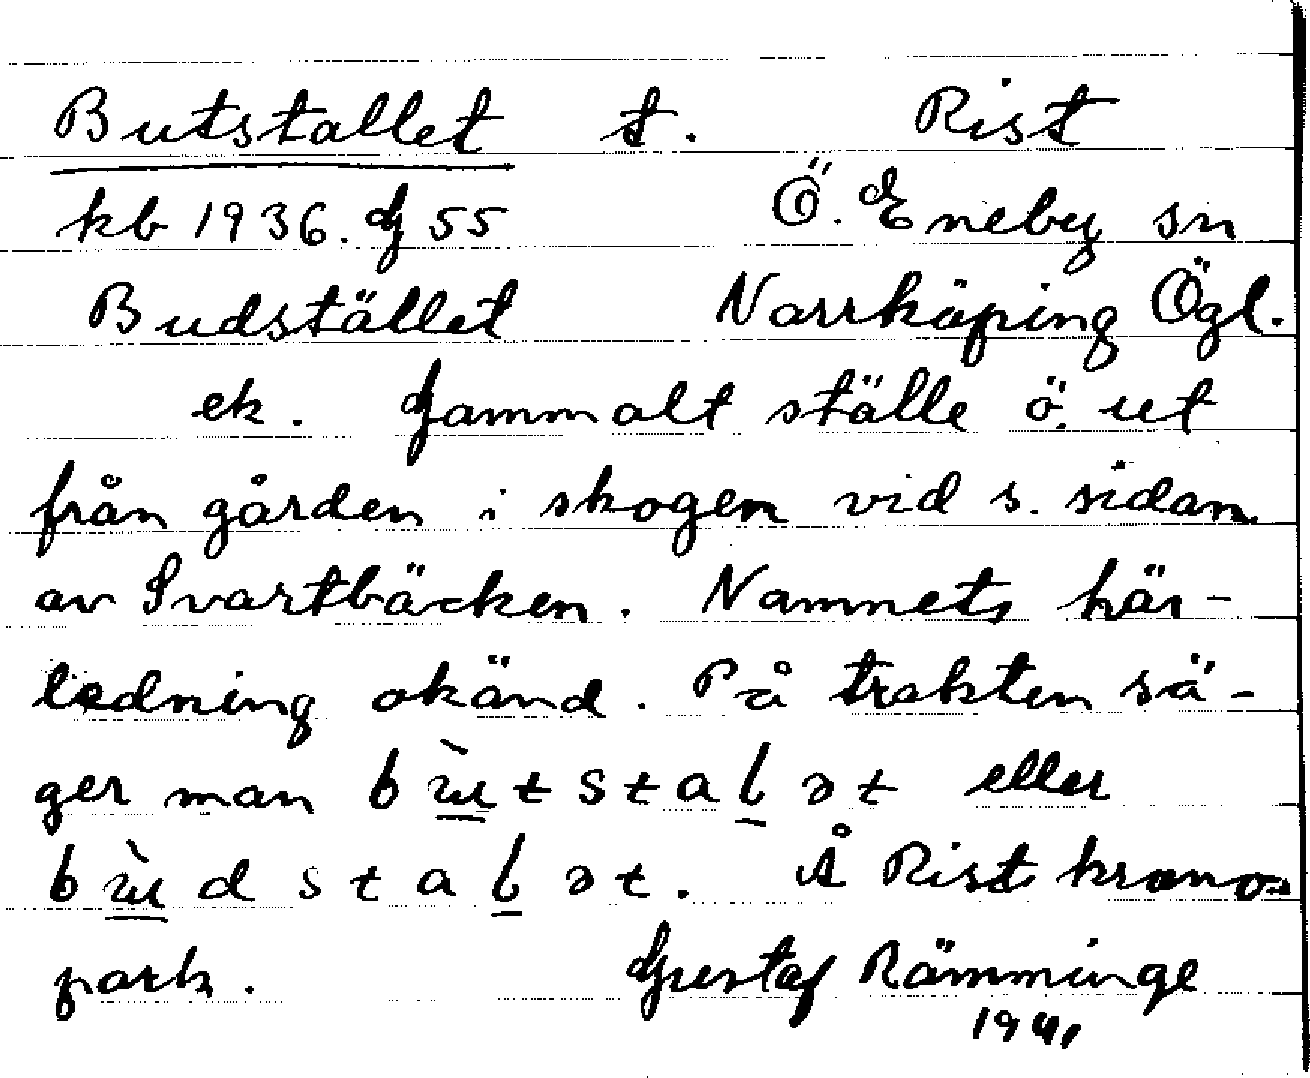 Butstallet t. Rist
kb 1936. G 55 Ö. Eneby sn
Budstället Norrköping Ögl.
ek. Gammalt ställe ö. ut
från gården i skogen vid s. sidan
av Svartbäcken. Namnets här-
ledning okänd. På trakten sä-
ger man bùtstalət eller
bùdstalət. Å Rist krono-
park. Gustaf Rämminge
1941